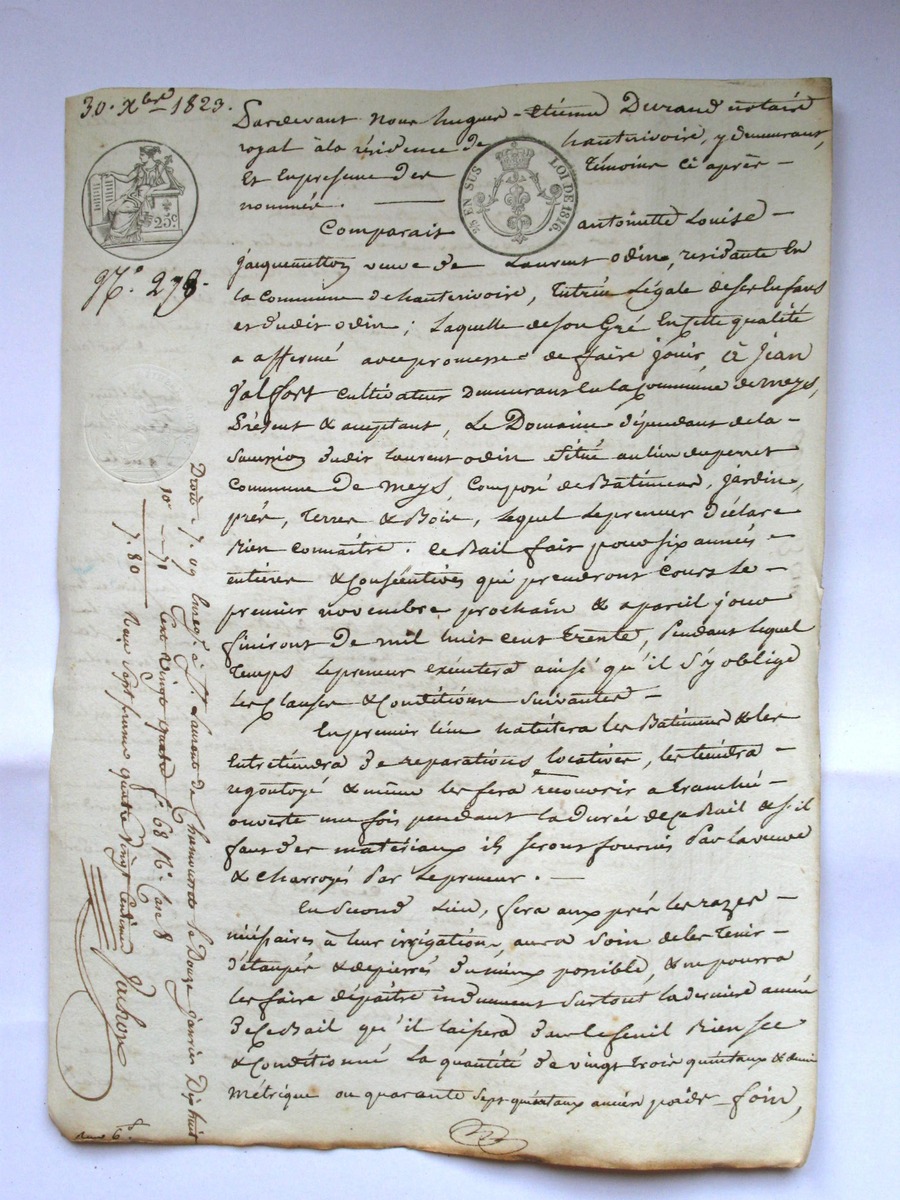 30. Xbre 1823.
Pardevant Nous hugues-Etienne Durand notaire
royal à la résidence de hauterivoire, y demeurant,
Et En presence des Témoins Ci après
nommés.
25 EN SUS LOI DE 1816.
25c
N.o 278.
Comparait antoinette Louise
Jacquemetton veuve de Laurent odin, residante En
la commune de hauterivoire, Tutrice Légale de ses Enfans
et dudit odin; Laquelle de son Gré En cette qualité
a affermé avec promesse de faire jouir, à Jean
Valfort cultivateur demeurant En la Commune de meys,
Présent & acceptant, Le Domaine dépendant de la
Succession dudit Laurent odin Situé au lieu du perret
Commune De meys, Composé de Bâtimens, jardin,
prés, Terres & Bois, lequel Le preneur déclare
Bien connaître. Ce Bail fait pour six années
entières & Consécutives qui prendront Cours Le
premier novembre prochain & a pareil jour
finiront De mil huit cent trente, Pendant lequel
Temps Le preneur exécutera ainsi qu'il s'y oblige
Les Clauses & Conditions Suivantes
En premier lieu habitera les Batimens & les
Entretiendra de reparations locatives, les tiendra
regoutoyé & même les fera recouvrir a tranché
ouverte une fois pendant la durée de ce Bail & s'il
faut des matériaux ils seront fournis Par la veuve
& Charroyés Par Le preneur.
En Second Lieu, fera aux prés les razes
nécessaires à leur irrigation, aura soin de les Tenir
détaupés & depierrés du mieux possible, & ne pourra
les faire dépaître induement Surtout la derniere année
de ce Bail qu'il laissera dans le fenil Bien sec
& Conditionné La quantité de vingt trois quintaux & demi
métrique ou quarante Sept quintaux ancien poids foin,
Droits 7. 09 Enreg. à St. Laurent de Chamousset le Douze janvier Dix huit
10e 71 Cent vingt quatre f. 68 R.o Case 8
7. 80 Reçu Sept francs quatre vingt Centimes